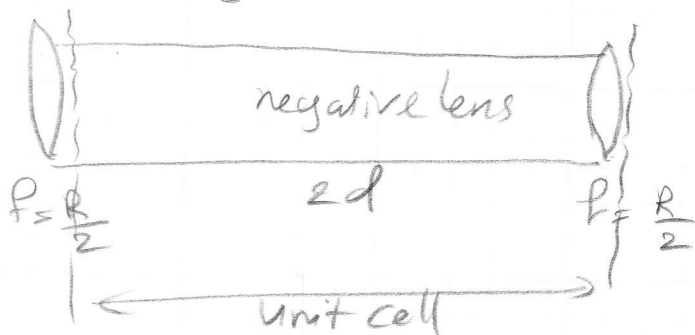 negative lens
f = R/2
2d
f = R/2
unit cell